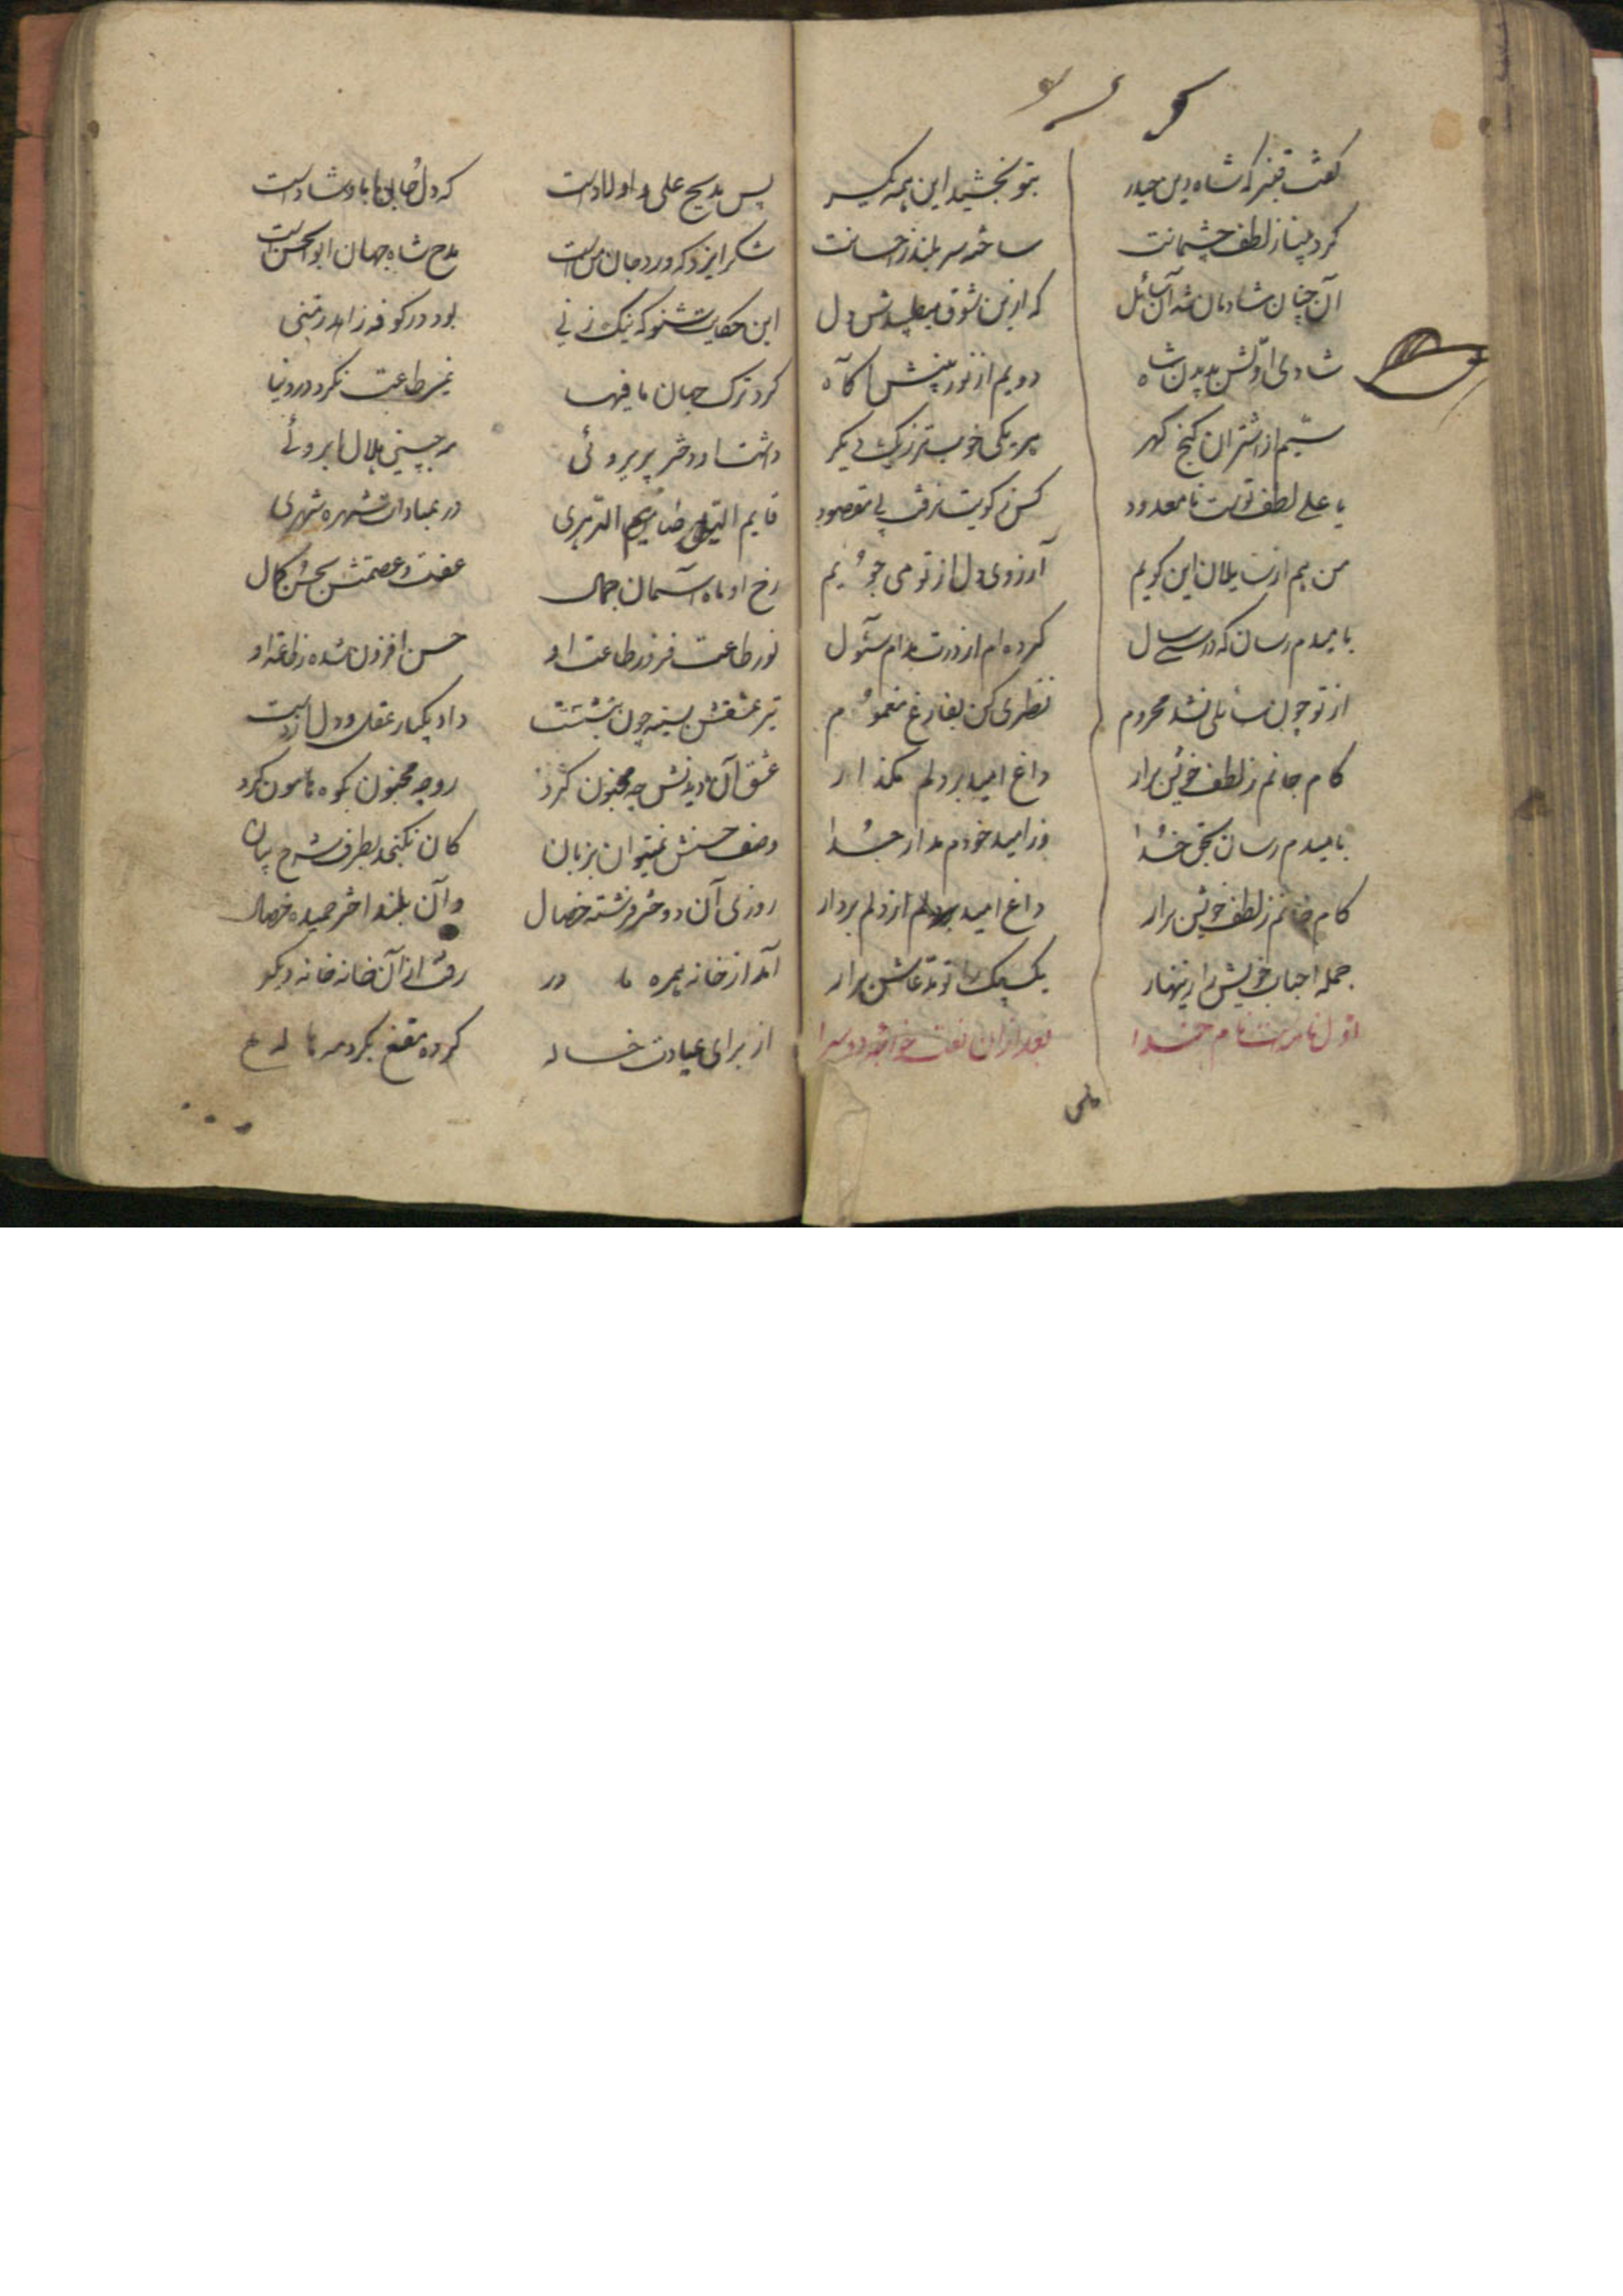 گفت قنبر که شاه دین حیدر
بتو بخشید این همه یکسر
کرد بینا ز لطف چشمانت
ساخته سر بلند ز احسانت
آن چنان شادمان شد آن سائل
که ازین شوق میطپیدش دل
شادی اولش بدیدن شاه
دویم از نور بینش آگاه
سیم از اشتران گنج گهر
هر یکی خوبتر ز یک دیگر
یا علی لطف تست نامعدود
کس ز کویت نرفت بی مقصود
من هم از سایلان این کویم
آرزوی دل از تو می جویم
بامیدم رسان که در سال
کرده ام از درت مدام سئول
از تو چون سائلی نشد محروم
نظری کن بفارغ مغموم
کام جانم ز لطف خویش برار
داغ امید بر دلم مگذار
بامیدم رسان بحق خدا
وز امید خودم مدار جدا
کام جانم ز لطف خویش برار
داغ امید از دلم بردار
جمله احباب خویش را زنهار
یک بیک را تو مدعاش برار
اول نامه است نام خدا
بعد از آن نعت خواجه دوسرا
پس مدیح علی و اولادست
که دل و جان ما باو شادست
شکر ایزد که ورد جان منست
مدح شاه جهان ابوالحسنست
این حکایت شنو که نیک زنی
بود در کوفه زاهد زمنی
کرد ترک جهان مافیها
غیر طاعت نکرد در دنیا
داشت او دختر پریروئی
مه جبینی هلال ابروئی
قایم اللیل صایم الدهری
در عبادات شهره شهری
رخ او ماه آسمان جمال
عفت و عصمتش بحسن کمال
نور طاعت فزود طاعت او
حسن افزون شده ز او
تیر عشقش بسینه چون بنشست
داد یکبار عقل و دل از دست
عشق آن مادرش چه مجنون کرد
رو چه مجنون بکوه هامون کرد
وصف حسنش نمیتوان بزبان
کان نگنجد بظرف شرح بیان
روزی آن دختر فرشته خصال
وان بلند اختر حمیده خصال
آمد از خانه همره مادر
رفت از آن خانه خانه دیگر
از برای عیادت خاله
کرده مقنع بگرد مه هاله